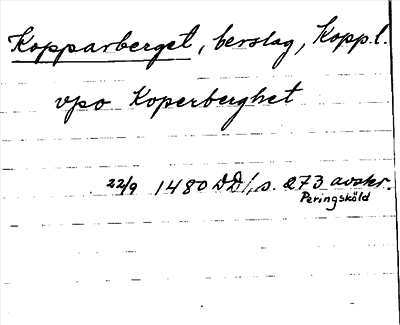 Kopparberget, berslag, Kopp.l.
vpo Koperberghet
22/9 1480 DD1, s. 273 avskr.
Peringsköld